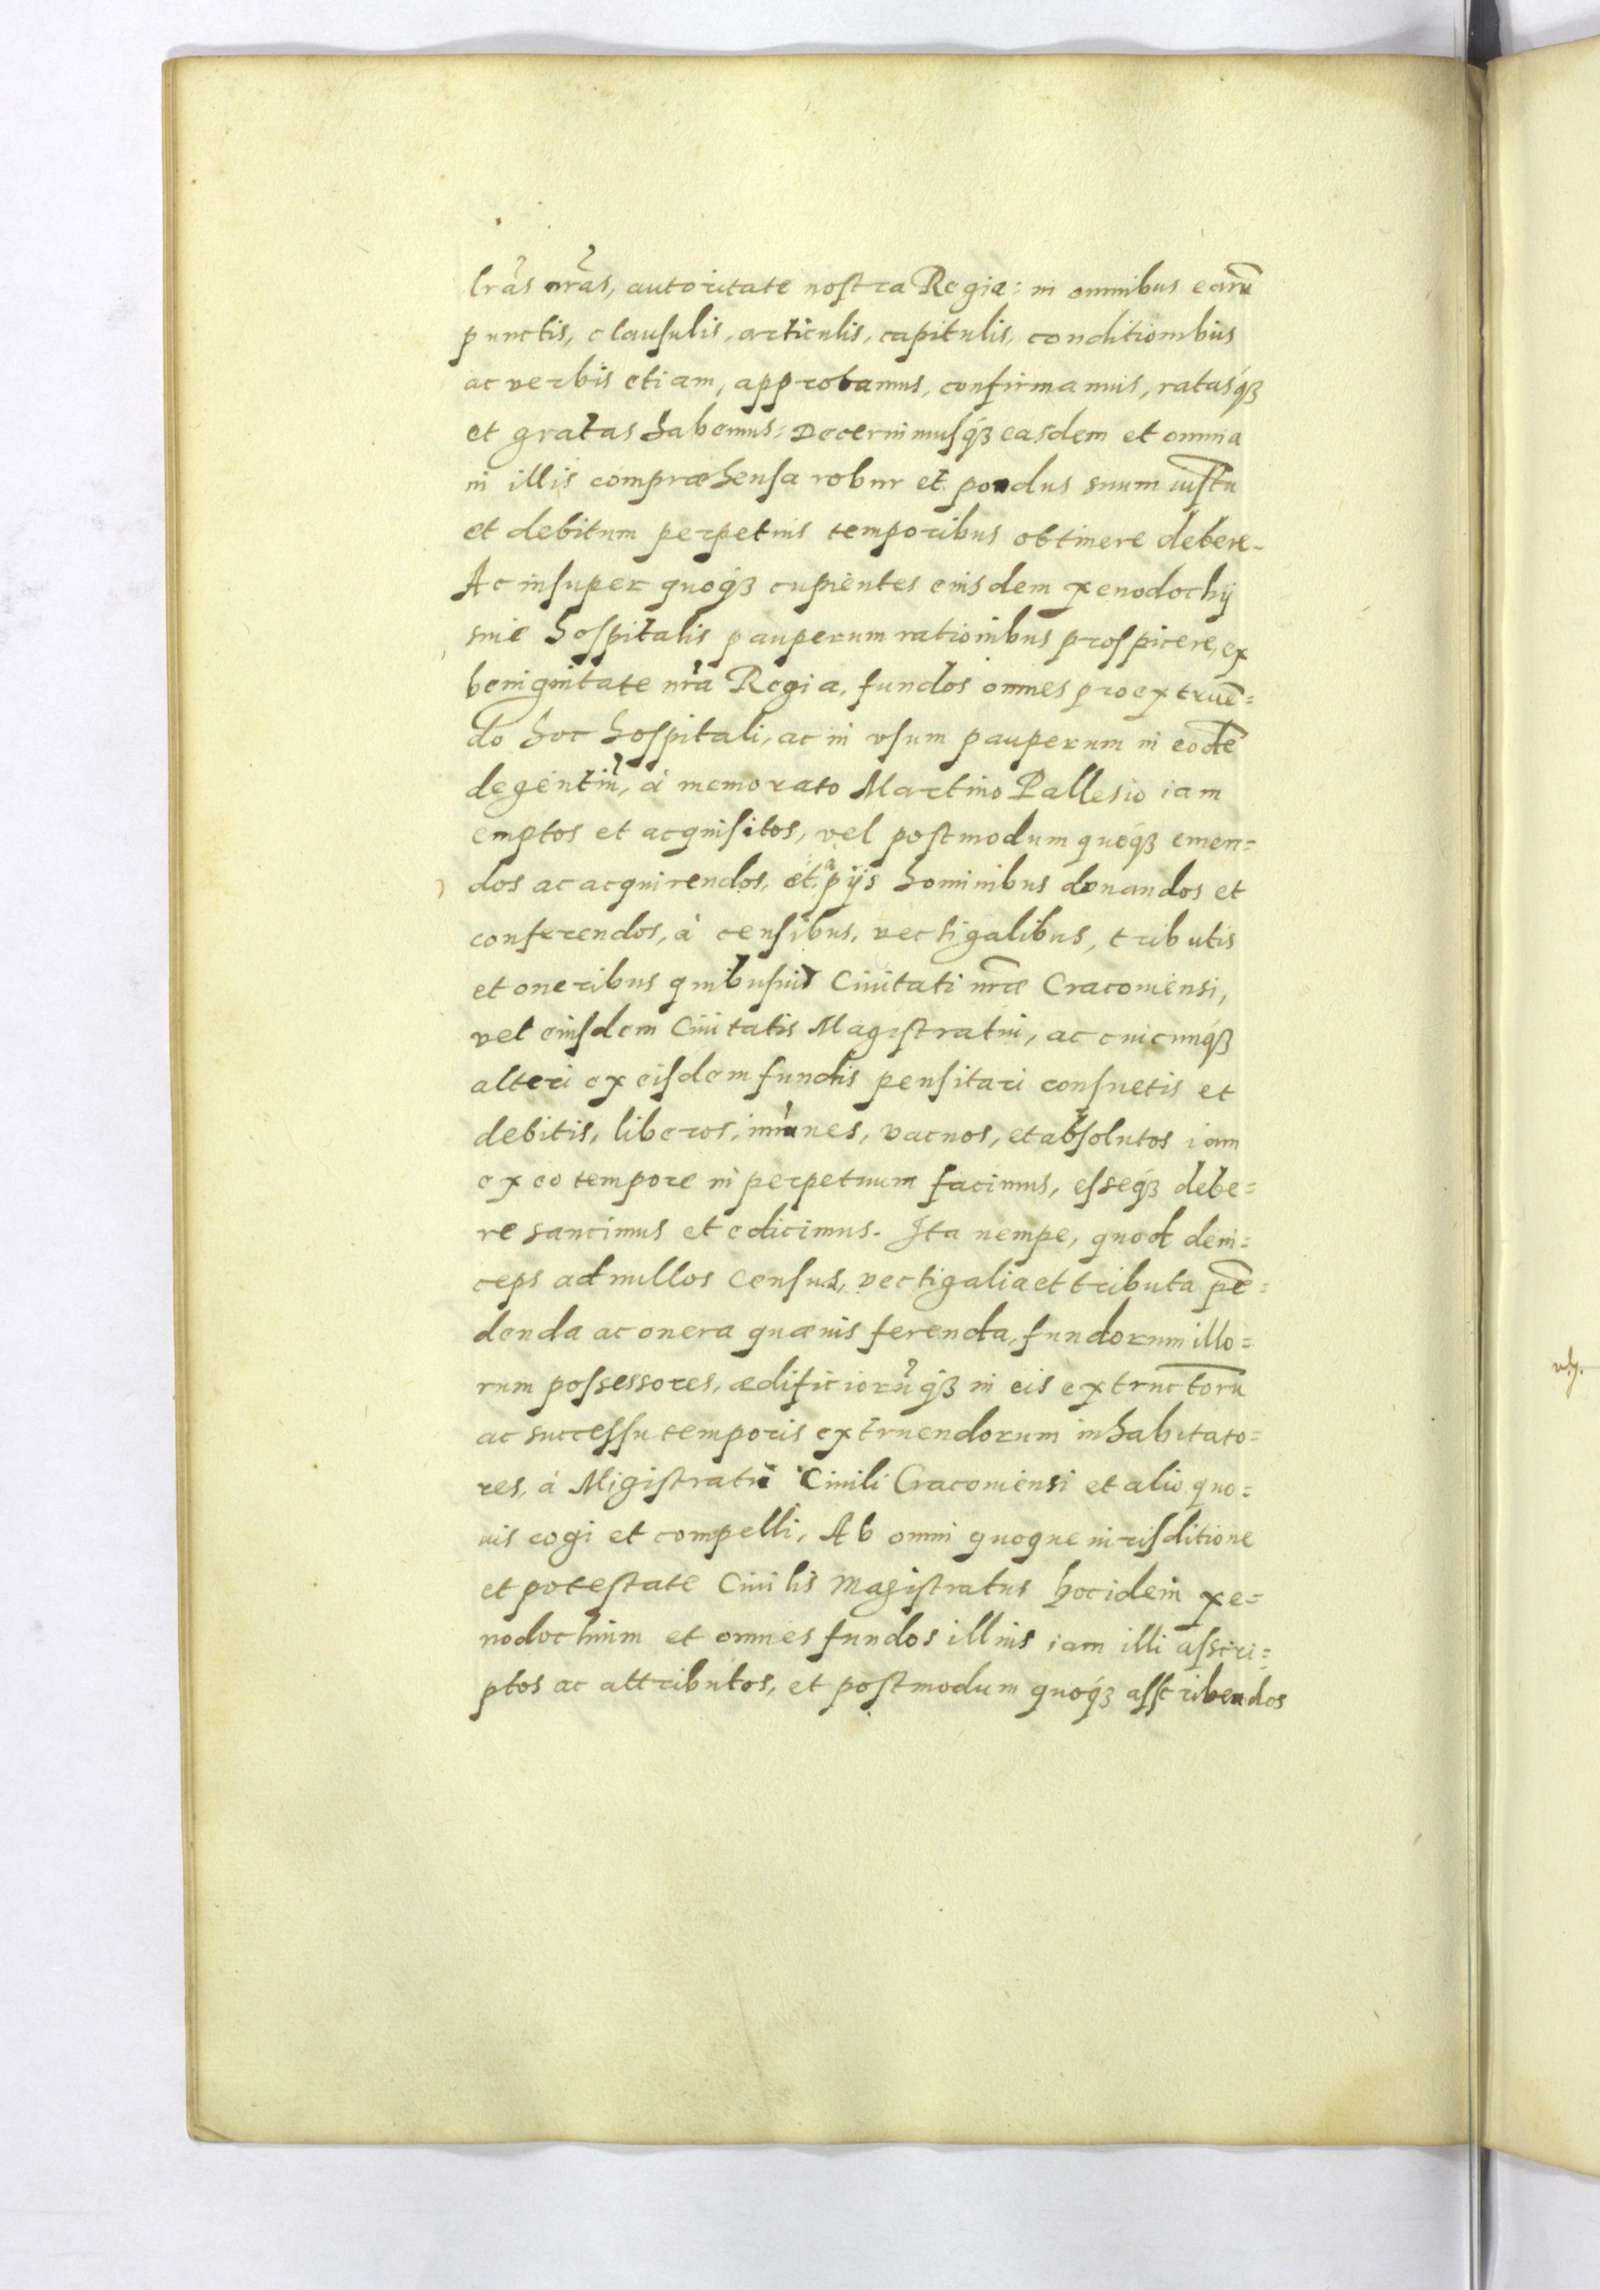 lras nras, autoritate nostra Regia: in omnibus earu
punctis, clausulis, articulis, capitulis, conditionibus
ac verbis etiam, approbamus, confirmamus, ratasq́ꝫ
et gratas habemus: Decernimusq́ꝫ easdem et omnia
in illis compræhensa robur et pondus suum iustu
et debitum perpetuis temporibus obtinere debere.
Ac insuper quoq́ꝫ cupientes eiusdem xenodochij
siue hospitalis pauperum rationibus prospicere, ex
benignitate nra Regia, fundos omnes pro extruē=
do hoc hospitali, ac in vsum pauperum in eodē
degentiū, à memorato Martino Pallesio iam
emptos et acquisitos, vel postmodum quoq́ꝫ emen=
dos ac acquirendos, et a pijs hominibus donandos et
conferendos, à censibus, vectigalibus, tributis
et oneribus quibusuis Ciuitati nræ Cracouiensi,
vel eiusdem Ciuitatis Magistratui, ac cuicunq́ꝫ
alteri ex eisdem fundis pensitari consuetis et
debitis, liberos, imunes, vacuos, et absolutos iam
ex eo tempore in perpetuum facimus, esseq́ꝫ debe=
re sancimus et edicimus. Ita nempe, quod dein=
ceps ad nullos Census, vectigalia et tributa pē=
denda ac onera quæuis ferenda, fundorum illo=
rum possessores, ædificiorūq́ꝫ in eis extructorū
ac successu temporis extruendorum inhabitato=
res, à Migistratu Ciuili Cracouiensi et alio quo=
uis cogi et compelli, Ab omni quoque iurisditione
et potestate Ciuilis Magistratus hoc idem xe=
nodochium et omnes fundos illius iam illi asscri=
ptos ac attributos, et postmodum quoq́ꝫ asscribendos